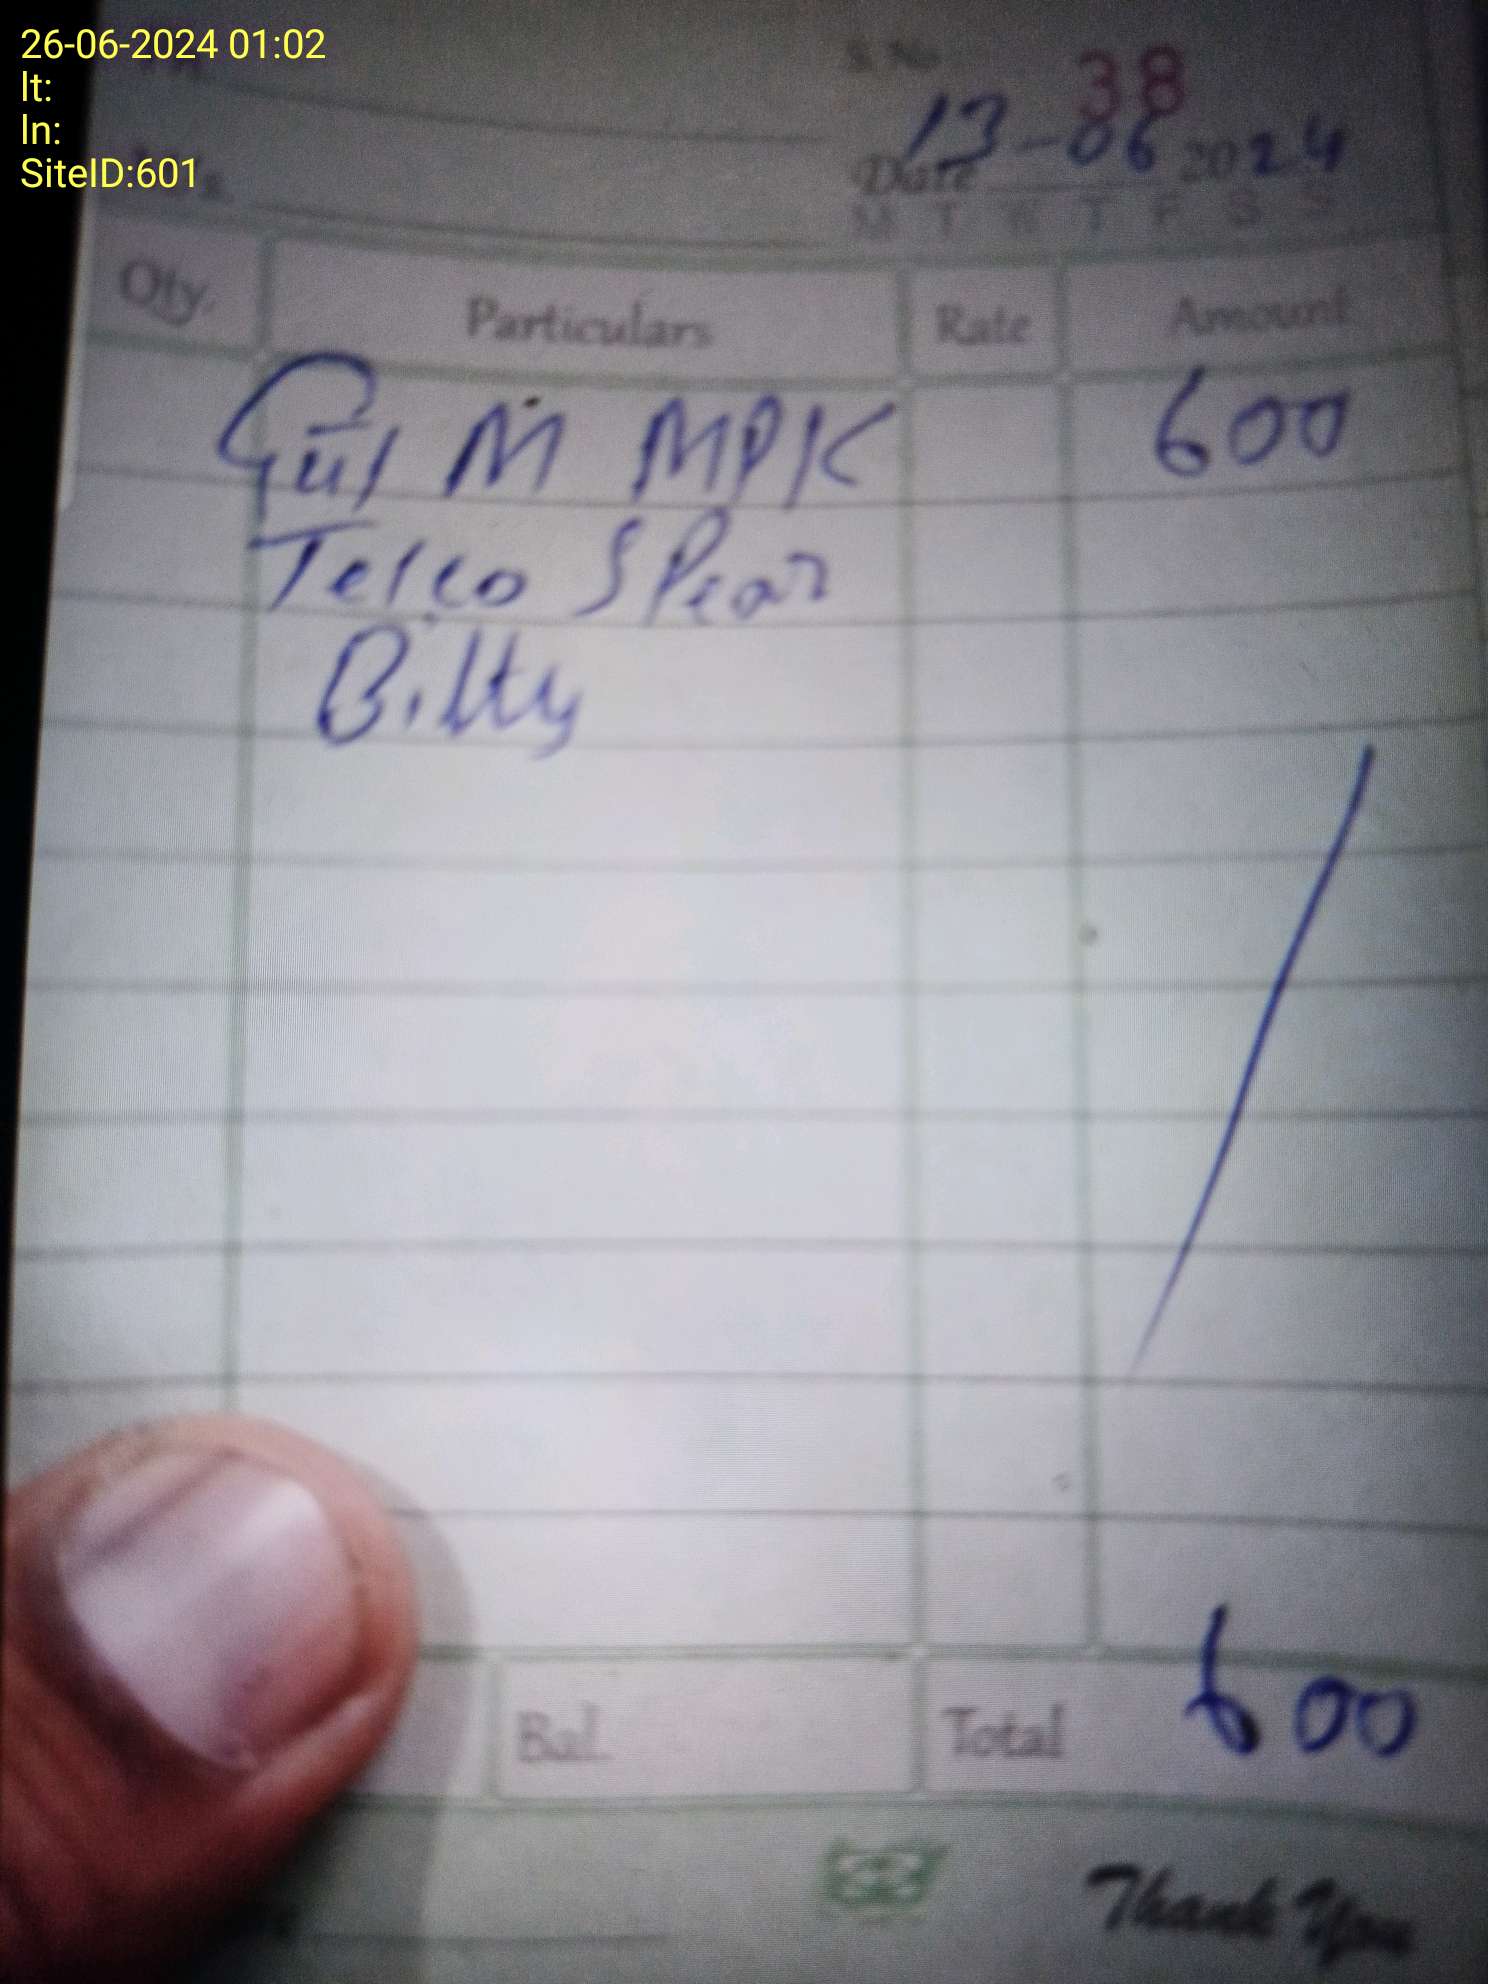 26-06-2024 01:02
lt:
ln:
SiteID:601
S. No. 38
Date 13-06 2024
M T W T F S S
Qty. Particulars Rate Amount
Gul M MPK 600
Telco SPear
Bilty
Bal. Total 600
Thank You